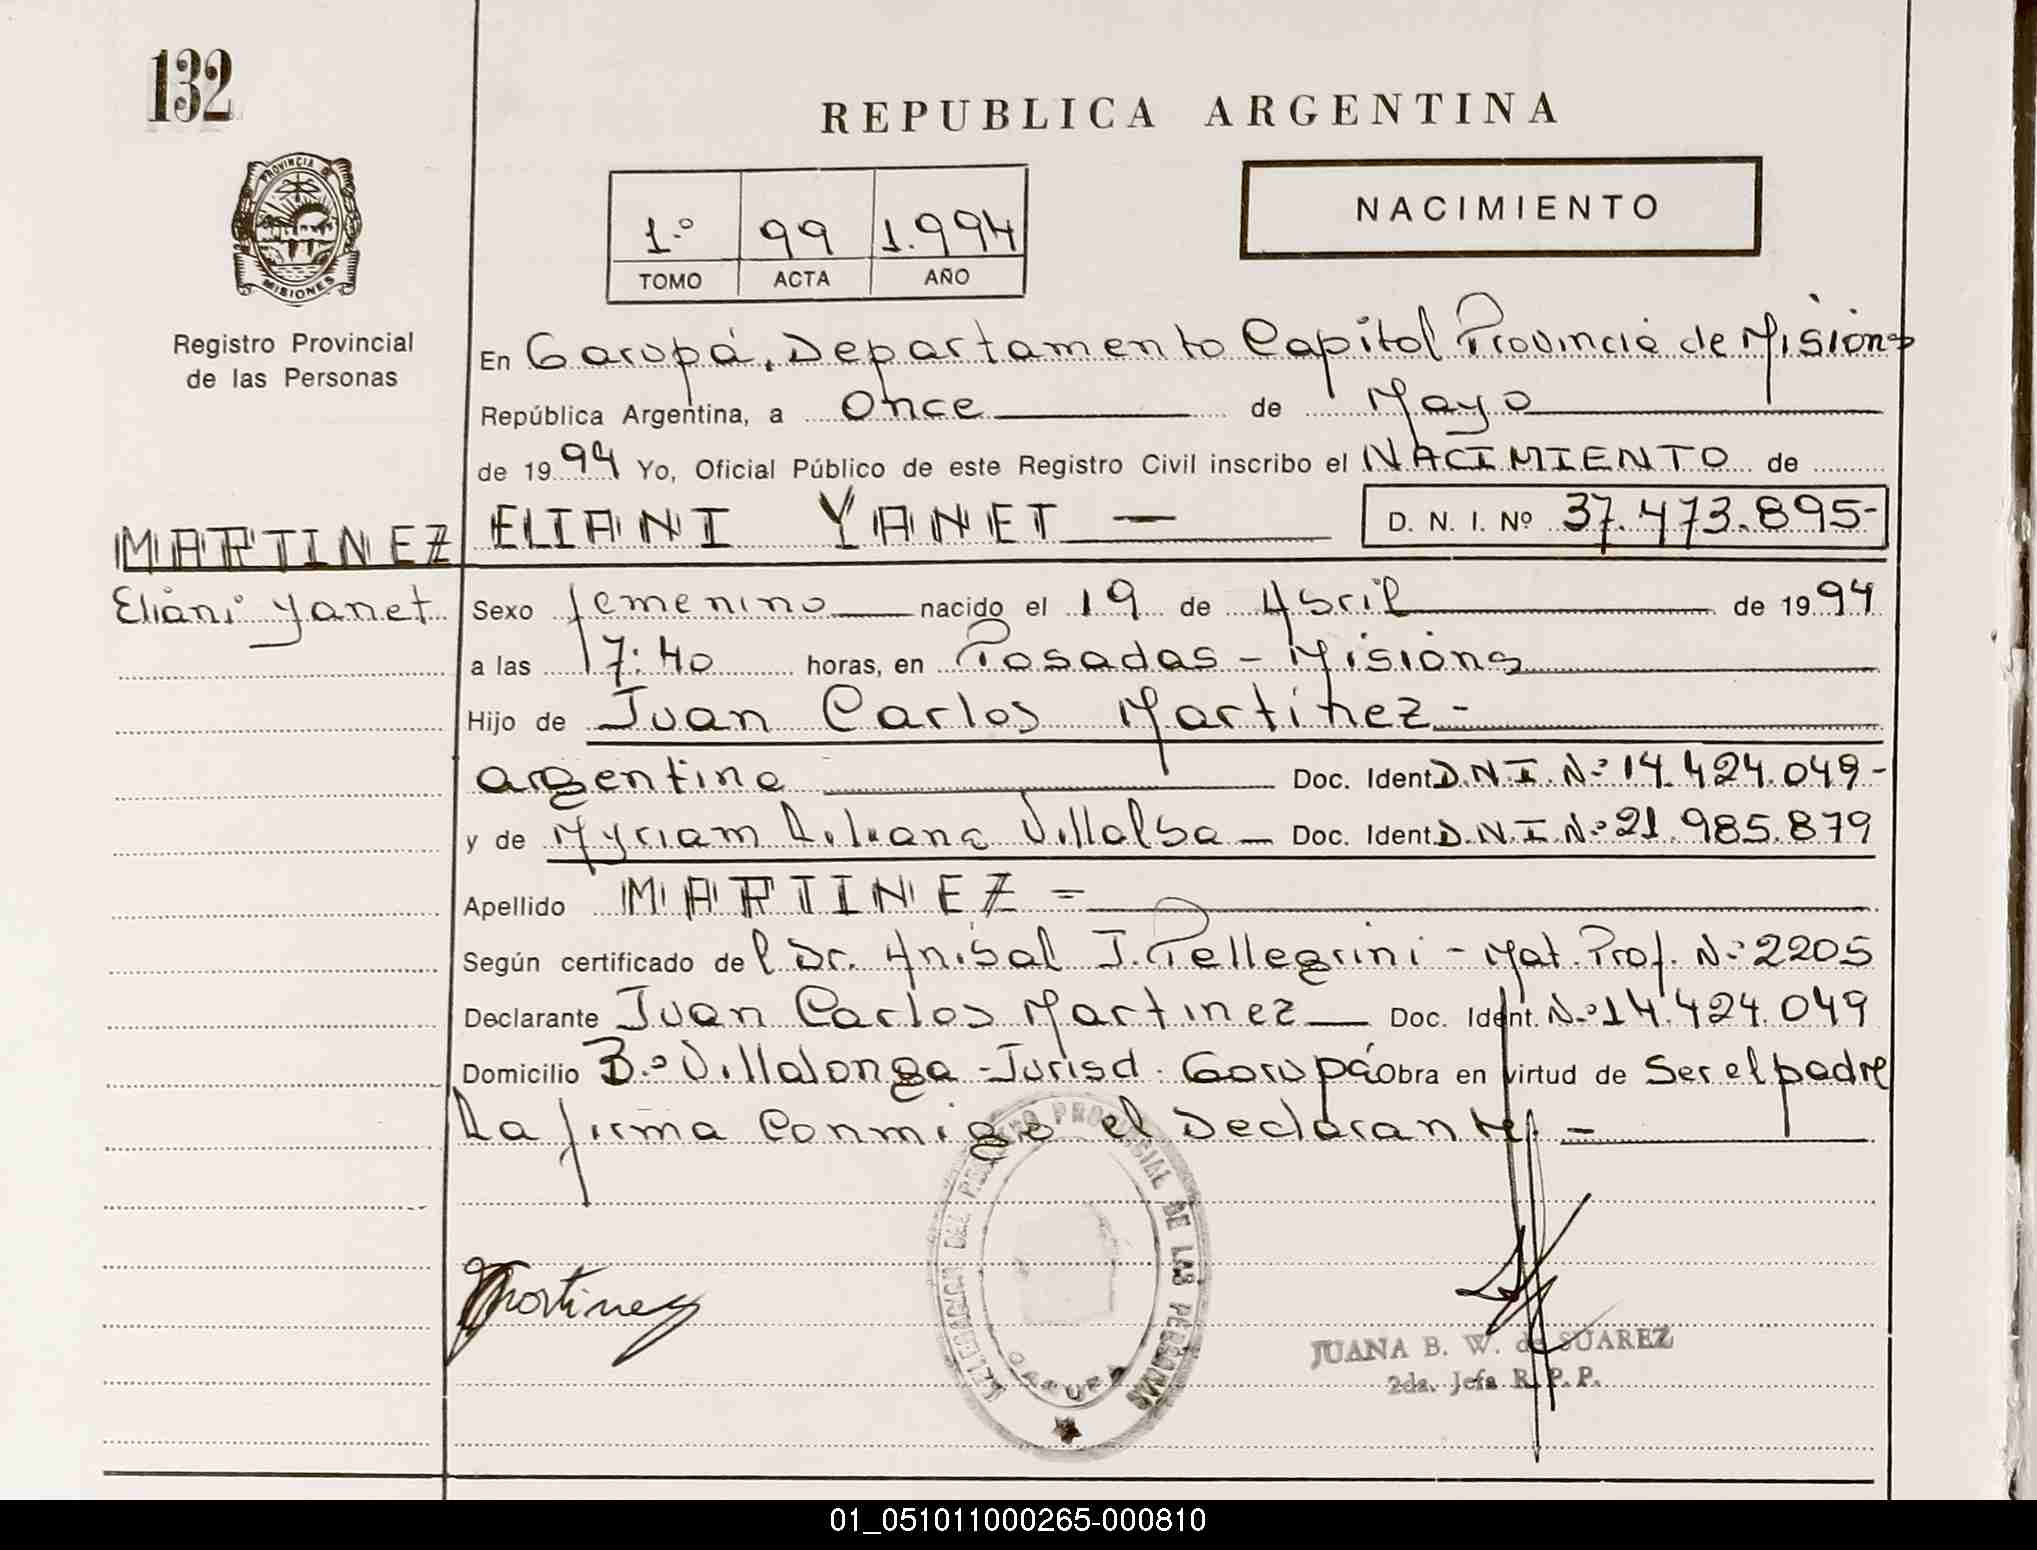 132
REPUBLICA ARGENTINA
PROVINCIA
MISIONES
Registro Provincial
de las Personas
1.º 99 1.994
TOMO ACTA AÑO
NACIMIENTO
En Garupá, Departamento Capital Provincia de Misiones
República Argentina, a once de Mayo
de 1994 Yo, Oficial Público de este Registro Civil inscribo el NACIMIENTO de
ELIANI YANET — D. N. I. Nº 37.473.895-
MARTINEZ
Eliani Yanet
Sexo femenino nacido el 19 de Abril de 1994
a las 17:40 horas, en Posadas - Misiones
Hijo de Juan Carlos Martinez -
argentino Doc. Ident D.N.I. Nº 14.424.049-
y de Myriam Liliana Villalba — Doc. Ident D.N.I. Nº 21.985.879
Apellido MARTINEZ =
Según certificado del Dr. Anibal J. Pellegrini - Mat. Prof. Nº 2205
Declarante Juan Carlos Martinez — Doc. Ident. Nº 14.424.049
Domicilio Bº Villalonga - Jurisd. Garupá Obra en virtud de Ser el padre
La firma conmigo el Declarante. —
Martinez
DELEGACION DEL REGISTRO PROVINCIAL DE LAS PERSONAS
GARUPA
JUANA B. W. de SUAREZ
2da. Jefa R. P. P.
01_051011000265-000810